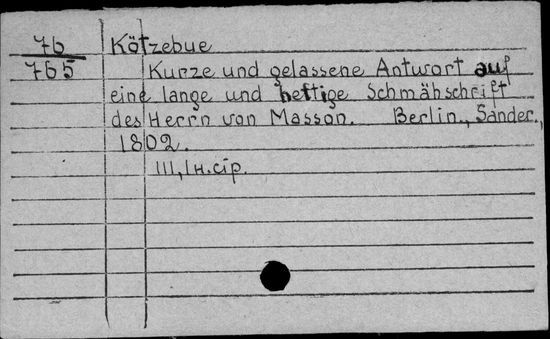 76 Kötzebue
765 Kurze und gelassene Antwort auf
eine lange und heftige Schmähschrift
des Herrn von Masson. Berlin., Sander.,
1802.
III, 1 н. стр.